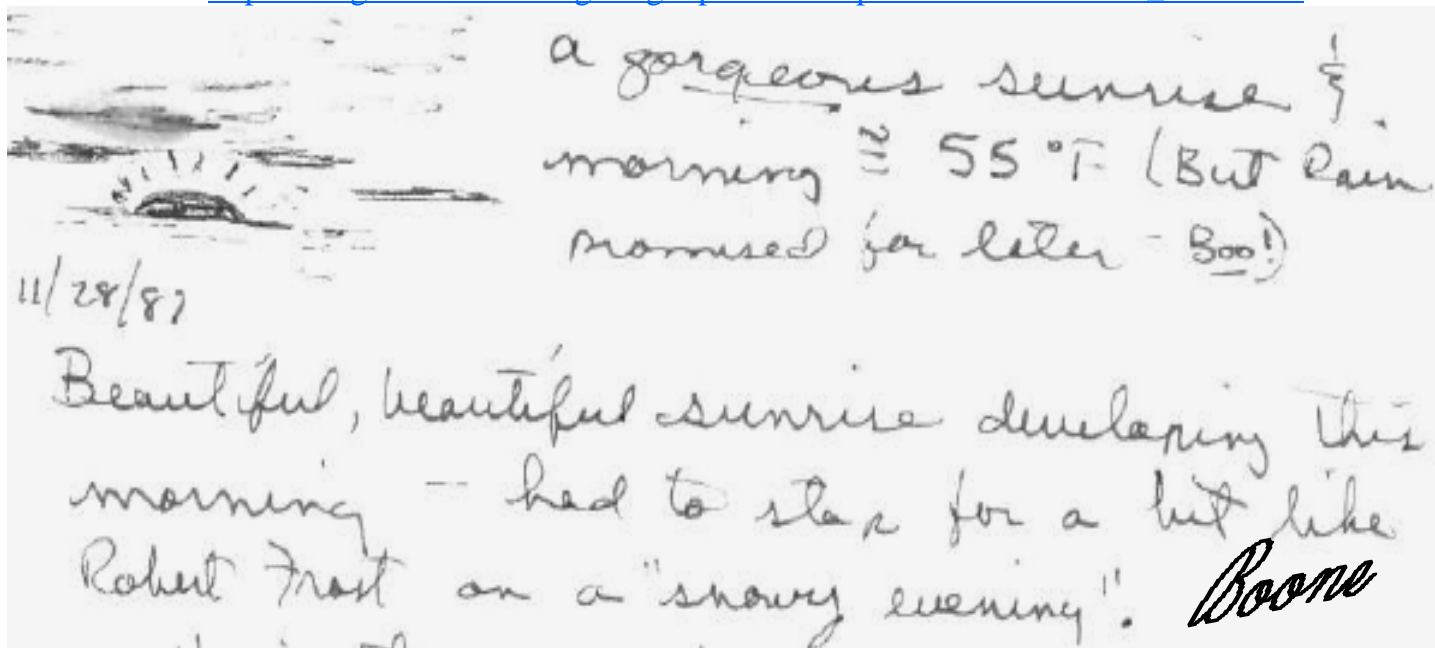 a gorgeous sunrise &
morning ≅ 55 °F (But Rain
promised for later - Boo!)
11/28/87
Beautiful, beautiful sunrise developing this
morning - had to stop for a bit like
Robert Frost on a "snowy evening".
Boone